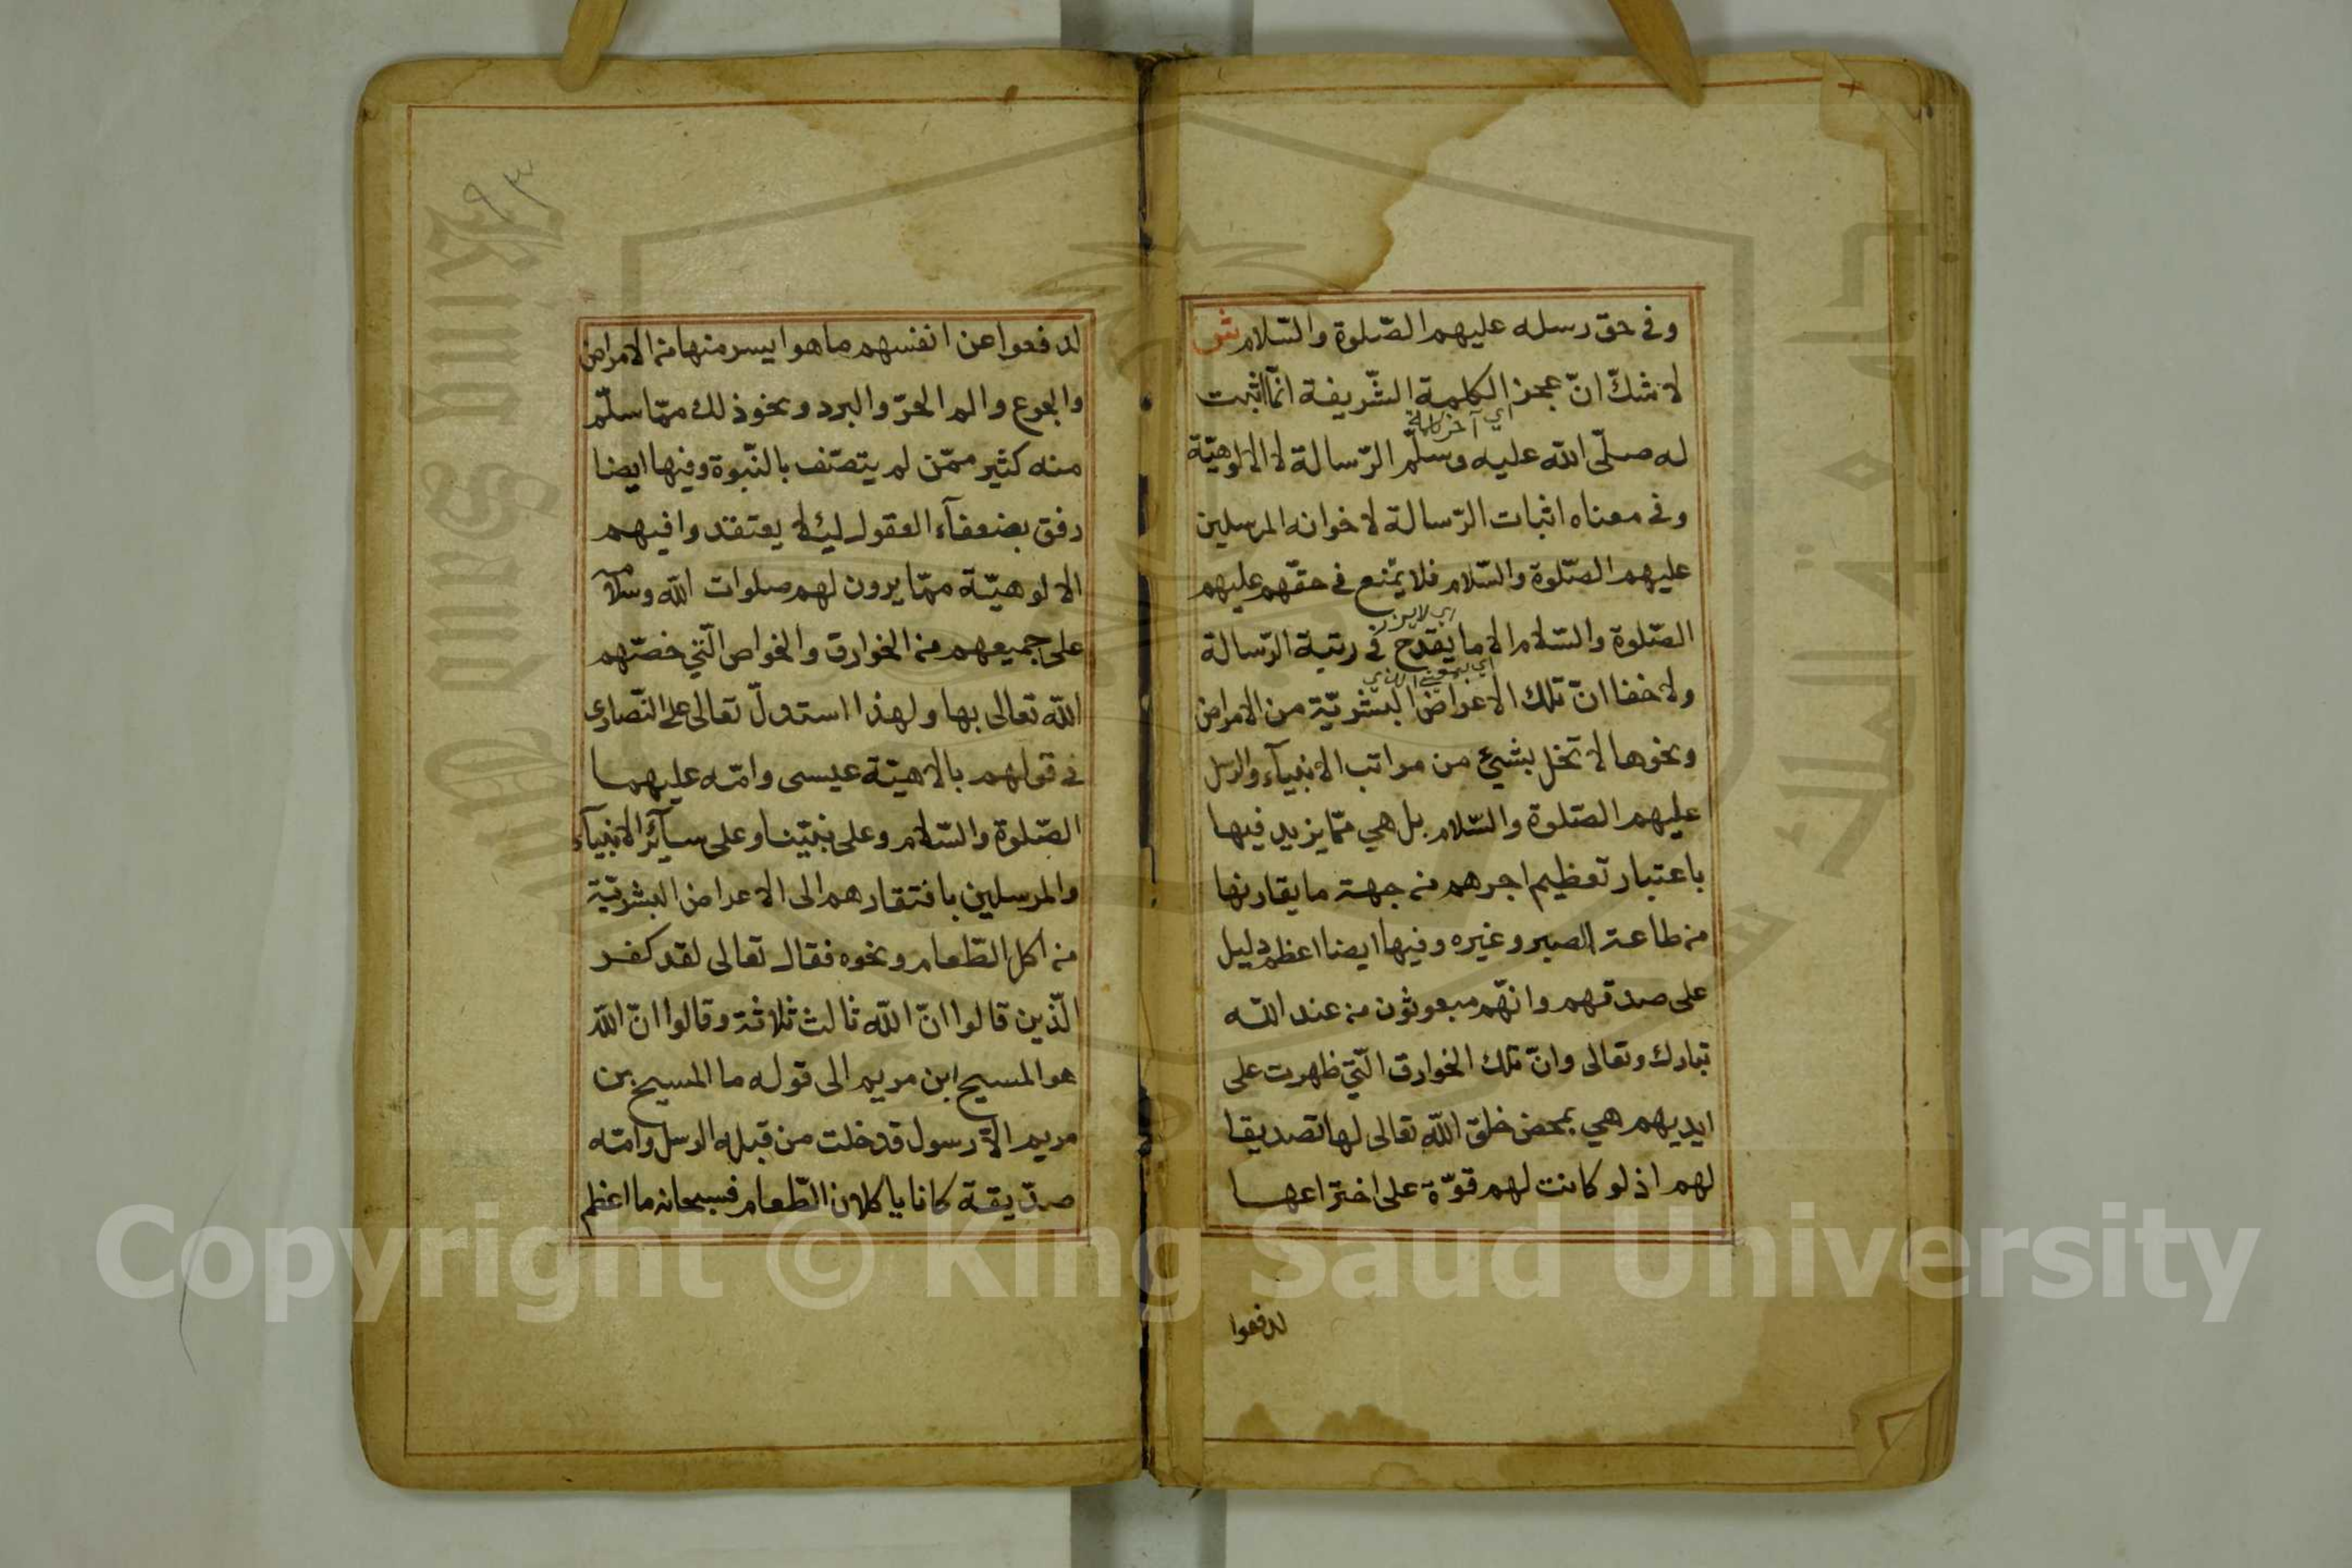 وفي حق رسله عليهم الصّلوة والسّلام ش
لا شكّ انّ عجز الكلمة الشّريفة انّما اثبت
اي آخر كلمة
له صلّى الله عليه وسلّم الرّسالة لا الالوهيّة
وفي معناه اثبات الرّسالة لاخوانه المرسلين
عليهم الصّلوة والسّلام فلا يمتنع في حقّهم عليهم
الصّلوة والسّلام الا ما يقدح في رتبة الرّسالة
ولا خفا انّ تلك الاعراض البشريّة من الامراض
ونحوها لا تخل بشيئ من مراتب الانبيآء والرسل
عليهم الصّلوة والسّلام بل هي ممّا يزيد فيها
باعتبار تعظيم اجرهم من جهة ما يقارنها
من طاعة الصبر وغيره وفيها ايضا اعظم دليل
على صدقهم وانّهم مبعوثون من عند الله
تبارك وتعالى وانّ تلك الخوارق الّتي ظهرت على
ايديهم هي بمحض خلق الله تعالى لها تصديقا
لهم اذ لو كانت لهم قوّة على اختراعها
لدفعوا
٩٣
لدفعوا عن انفسهم ما هو ايسر منها من الامراض
والجوع والم الحرّ والبرد ونحو ذلك ممّا سلّم
منه كثير ممّن لم يتصّف بالنّبوة وفيها ايضا
رفق بضعفآء العقول ليئلا يعتقدوا فيهم
الالوهيّة ممّا يرون لهم صلوات الله وسلامه
على جميعهم من الخوارق والخواص الّتي خصّهم
الله تعالى بها ولهذا استدلّ تعالى على النّصارى
في قولهم بالاهيّة عيسى وامّه عليهما
الصّلوة والسّلام وعلى نبيّنا وعلى سآئر الانبيآء
والمرسلين بافتقارهم الى الاعراض البشريّة
من اكل الطّعام ونحوه فقال تعالى لقد كفر
الّذين قالوا انّ الله ثالث ثلاثة وقالوا انّ الله
هو المسيح ابن مريم الى قوله ما المسيح بن
مريم الاّ رسول قد خلت من قبله الرسل وامّه
صدّيقة كانا ياكلان الطّعام فسبحانه ما اعظم
Copyright © King Saud University